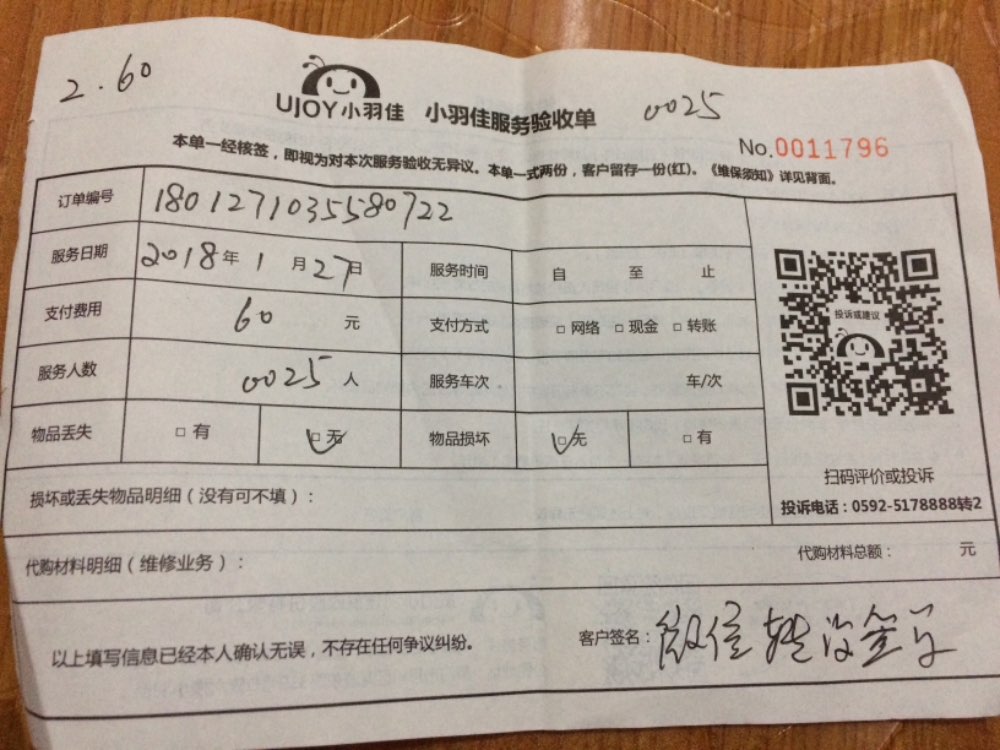 2.60
UJOY小羽佳 小羽佳服务验收单 0025
No.0011796
本单一经核签，即视为对本次服务验收无异议。本单一式两份，客户留存一份(红)。《维保须知》详见背面。
订单编号 18012710355580722
服务日期 2018年1月27日 服务时间 自 至 止
支付费用 60 元 支付方式 □网络 □现金 □转账
服务人数 0025人 服务车次 车/次
物品丢失 □有 □无 物品损坏 □无 □有
投诉或建议
扫码评价或投诉
投诉电话：0592-5178888转2
损坏或丢失物品明细（没有可不填）：
代购材料明细（维修业务）： 代购材料总额： 元
以上填写信息已经本人确认无误，不存在任何争议纠纷。 客户签名：微信转没签字